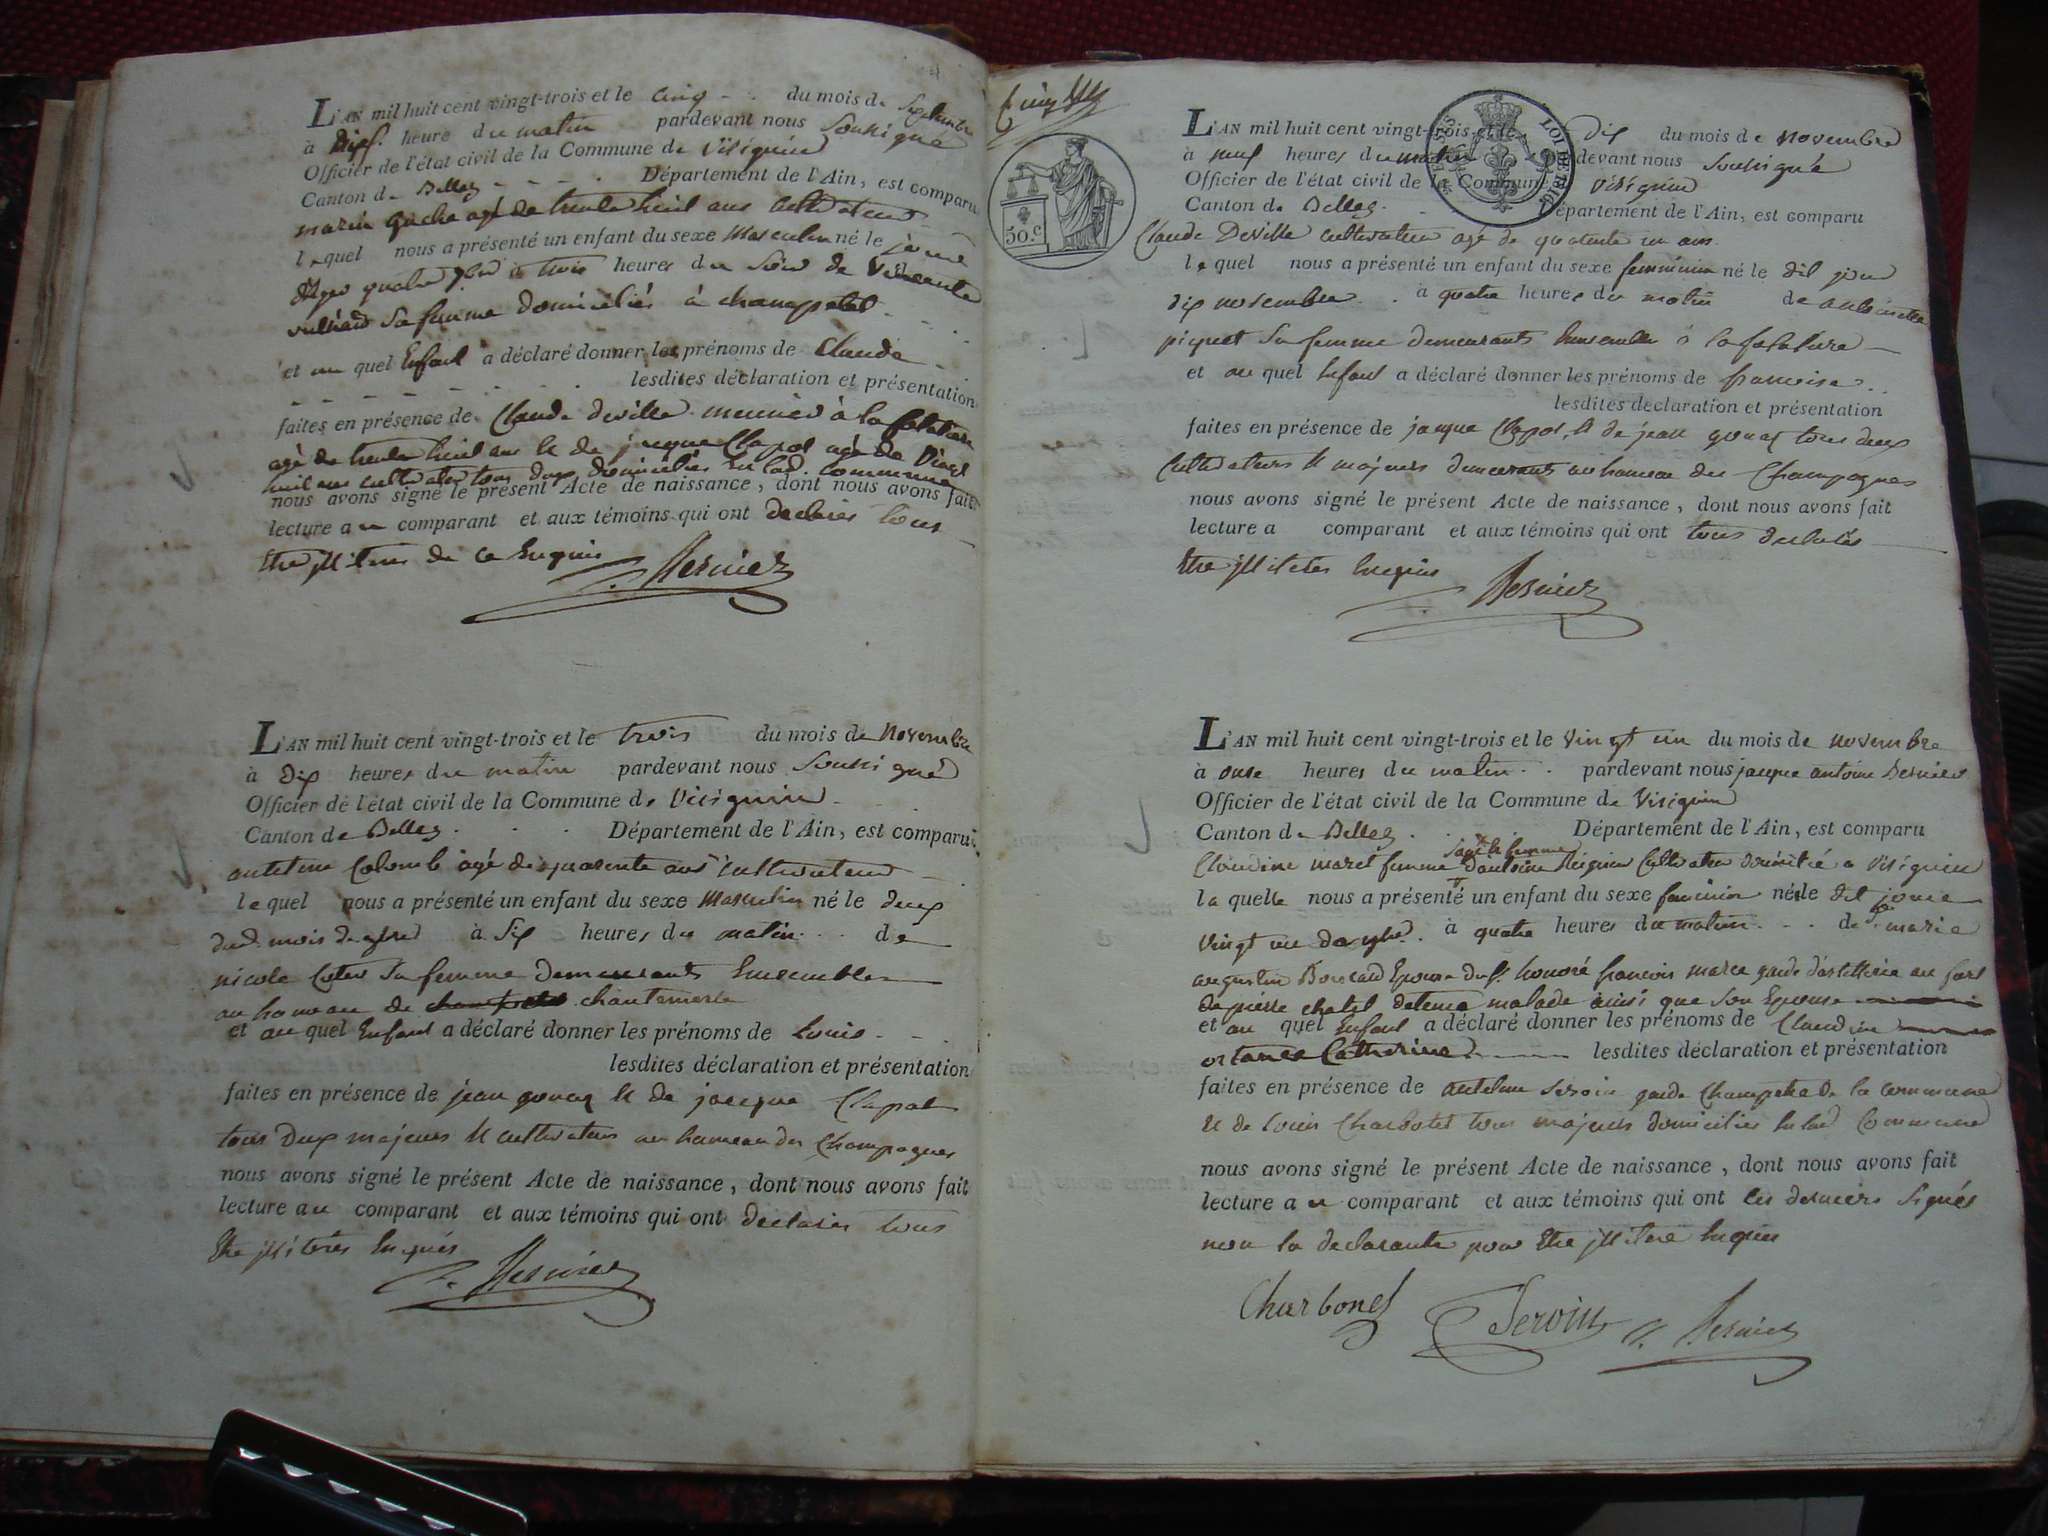 L'AN mil huit cent vingt-trois et le cinq du mois de Septembre
à heure du matin pardevant nous Soussigné
Officier de l'état civil de la Commune de Virignin
Canton de Belley Département de l'Ain, est comparu
marin gache agé de trente huit ans Cultivateur
lequel nous a présenté un enfant du sexe masculin né le
quatre à trois heures du Soir de Vincente
sa femme domiciliés à
et au quel Enfant a déclaré donner les prénoms de Claude
lesdites déclaration et présentation
faites en présence de Claude deville meunier à la
agé de trente huit ans & de jacque Clapot agé de Vingt
huit ans cultivateur tous deux domiciliés en lad. commune
nous avons signé le présent Acte de naissance, dont nous avons fait
lecture au comparant et aux témoins qui ont declarés tous
être illiteres de ce Enquis
Bernier
L'AN mil huit cent vingt-trois et le trois du mois de Novembre
à dix heures du matin pardevant nous Soussigné
Officier de l'état civil de la Commune de Virignin
Canton de Belley Département de l'Ain, est comparu
antelme Colomb agé de quarente ans cultivateur
lequel nous a présenté un enfant du sexe masculin né le deux
dud. mois de à six heures du matin de
nicole sa femme demeurants Ensembles
au hameau de chantemerle
et au quel Enfant a déclaré donner les prénoms de Louis
lesdites déclaration et présentation
faites en présence de jean gonaz & de jacque Clapot
tous deux majeurs & cultivateurs au hameau des Champagnes
nous avons signé le présent Acte de naissance, dont nous avons fait
lecture au comparant et aux témoins qui ont declarés tous
être illiteres Enquis
Bernier
50.C
LOI DE
L'AN mil huit cent vingt-trois et le dix du mois de novembre
à neuf heures du matin pardevant nous Soussigné
Officier de l'état civil de la Commune Virignin
Canton de Belley Département de l'Ain, est comparu
Claude Deville cultivateur agé de quarente un ans
lequel nous a présenté un enfant du sexe feminin né le dit jour
dix novembre à quatre heures du matin de antoinette
piquet sa femme demeurants Ensemble à la
et au quel Enfant a déclaré donner les prénoms de francoise
lesdites déclaration et présentation
faites en présence de jacque Clapot, & de jean gonaz tous deux
Cultivateurs & majeurs demeurants au hameau des Champagnes
nous avons signé le présent Acte de naissance, dont nous avons fait
lecture a comparant et aux témoins qui ont tous declarés
être illiteres Enquis
Bernier
L'AN mil huit cent vingt-trois et le vingt un du mois de novembre
à onse heures du matin pardevant nous jacque antoine Bernier
Officier de l'état civil de la Commune de Virignin
Canton de Belley Département de l'Ain, est comparu
sage femme
Claudine maret femme d'antoine Cultivateur domicilié a Virignin
la quelle nous a présenté un enfant du sexe feminin né le dit jour
vingt un à quatre heures du matin de marie
augustin Epouse du Sr. honoré francois garde d'artillerie au fort
de pierre chatel detenu malade ainsi que son Epouse
et au quel Enfant a déclaré donner les prénoms de Claudine
ortance Catherine lesdites déclaration et présentation
faites en présence de antelme Seroin garde Champetre de la Commune
& de Louis Charbonet tous majeurs domiciliés en lad. Commune
nous avons signé le présent Acte de naissance, dont nous avons fait
lecture au comparant et aux témoins qui ont les derniers signés
non la declarante pour être illitere Enquise
Charbonet Seroin Bernier